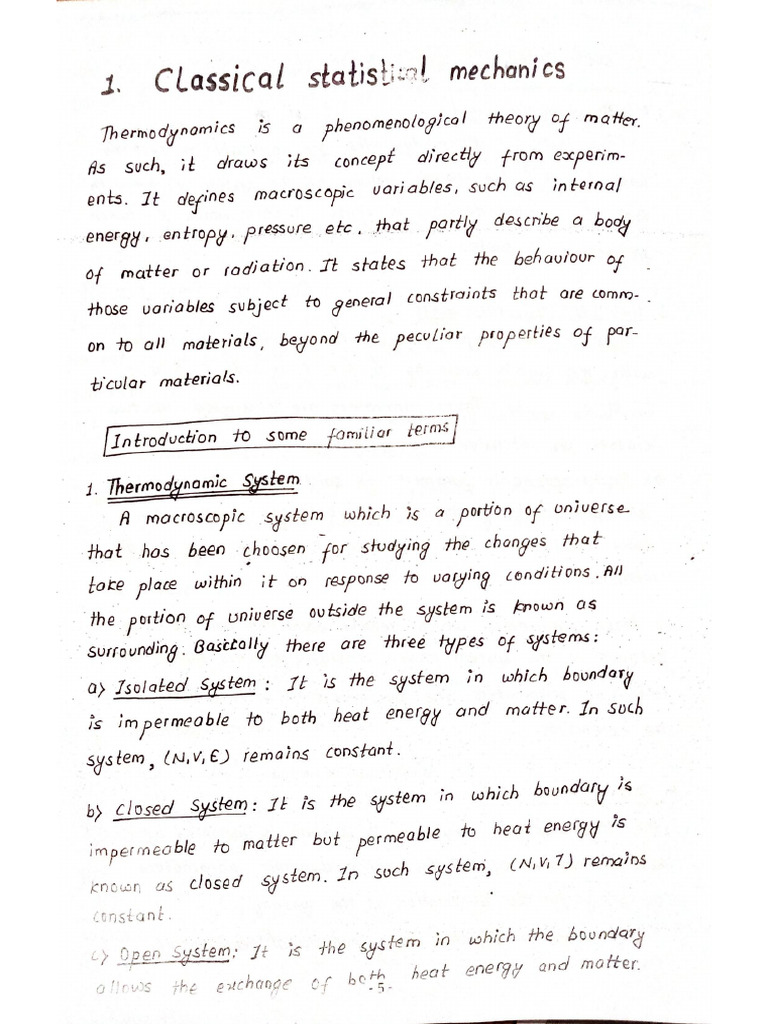 1. Classical statistical mechanics
Thermodynamics is a phenomenological theory of matter.
As such, it draws its concept directly from experim-
ents. It defines macroscopic variables, such as internal
energy, entropy, pressure etc, that partly describe a body
of matter or radiation. It states that the behaviour of
those variables subject to general constraints that are comm-
on to all materials, beyond the peculiar properties of par-
ticular materials.
Introduction to some familiar terms
1. Thermodynamic System
A macroscopic system which is a portion of universe
that has been choosen for studying the changes that
take place within it on response to varying conditions. All
the portion of universe outside the system is known as
surrounding. Basically there are three types of systems:
a) Isolated System: It is the system in which boundary
is impermeable to both heat energy and matter. In such
system, (N,V,E) remains constant.
b) Closed System: It is the system in which boundary is
impermeable to matter but permeable to heat energy is
known as closed system. In such system, (N,V,T) remains
constant.
c) Open System: It is the system in which the boundary
allows the exchange of both heat energy and matter.
-5-